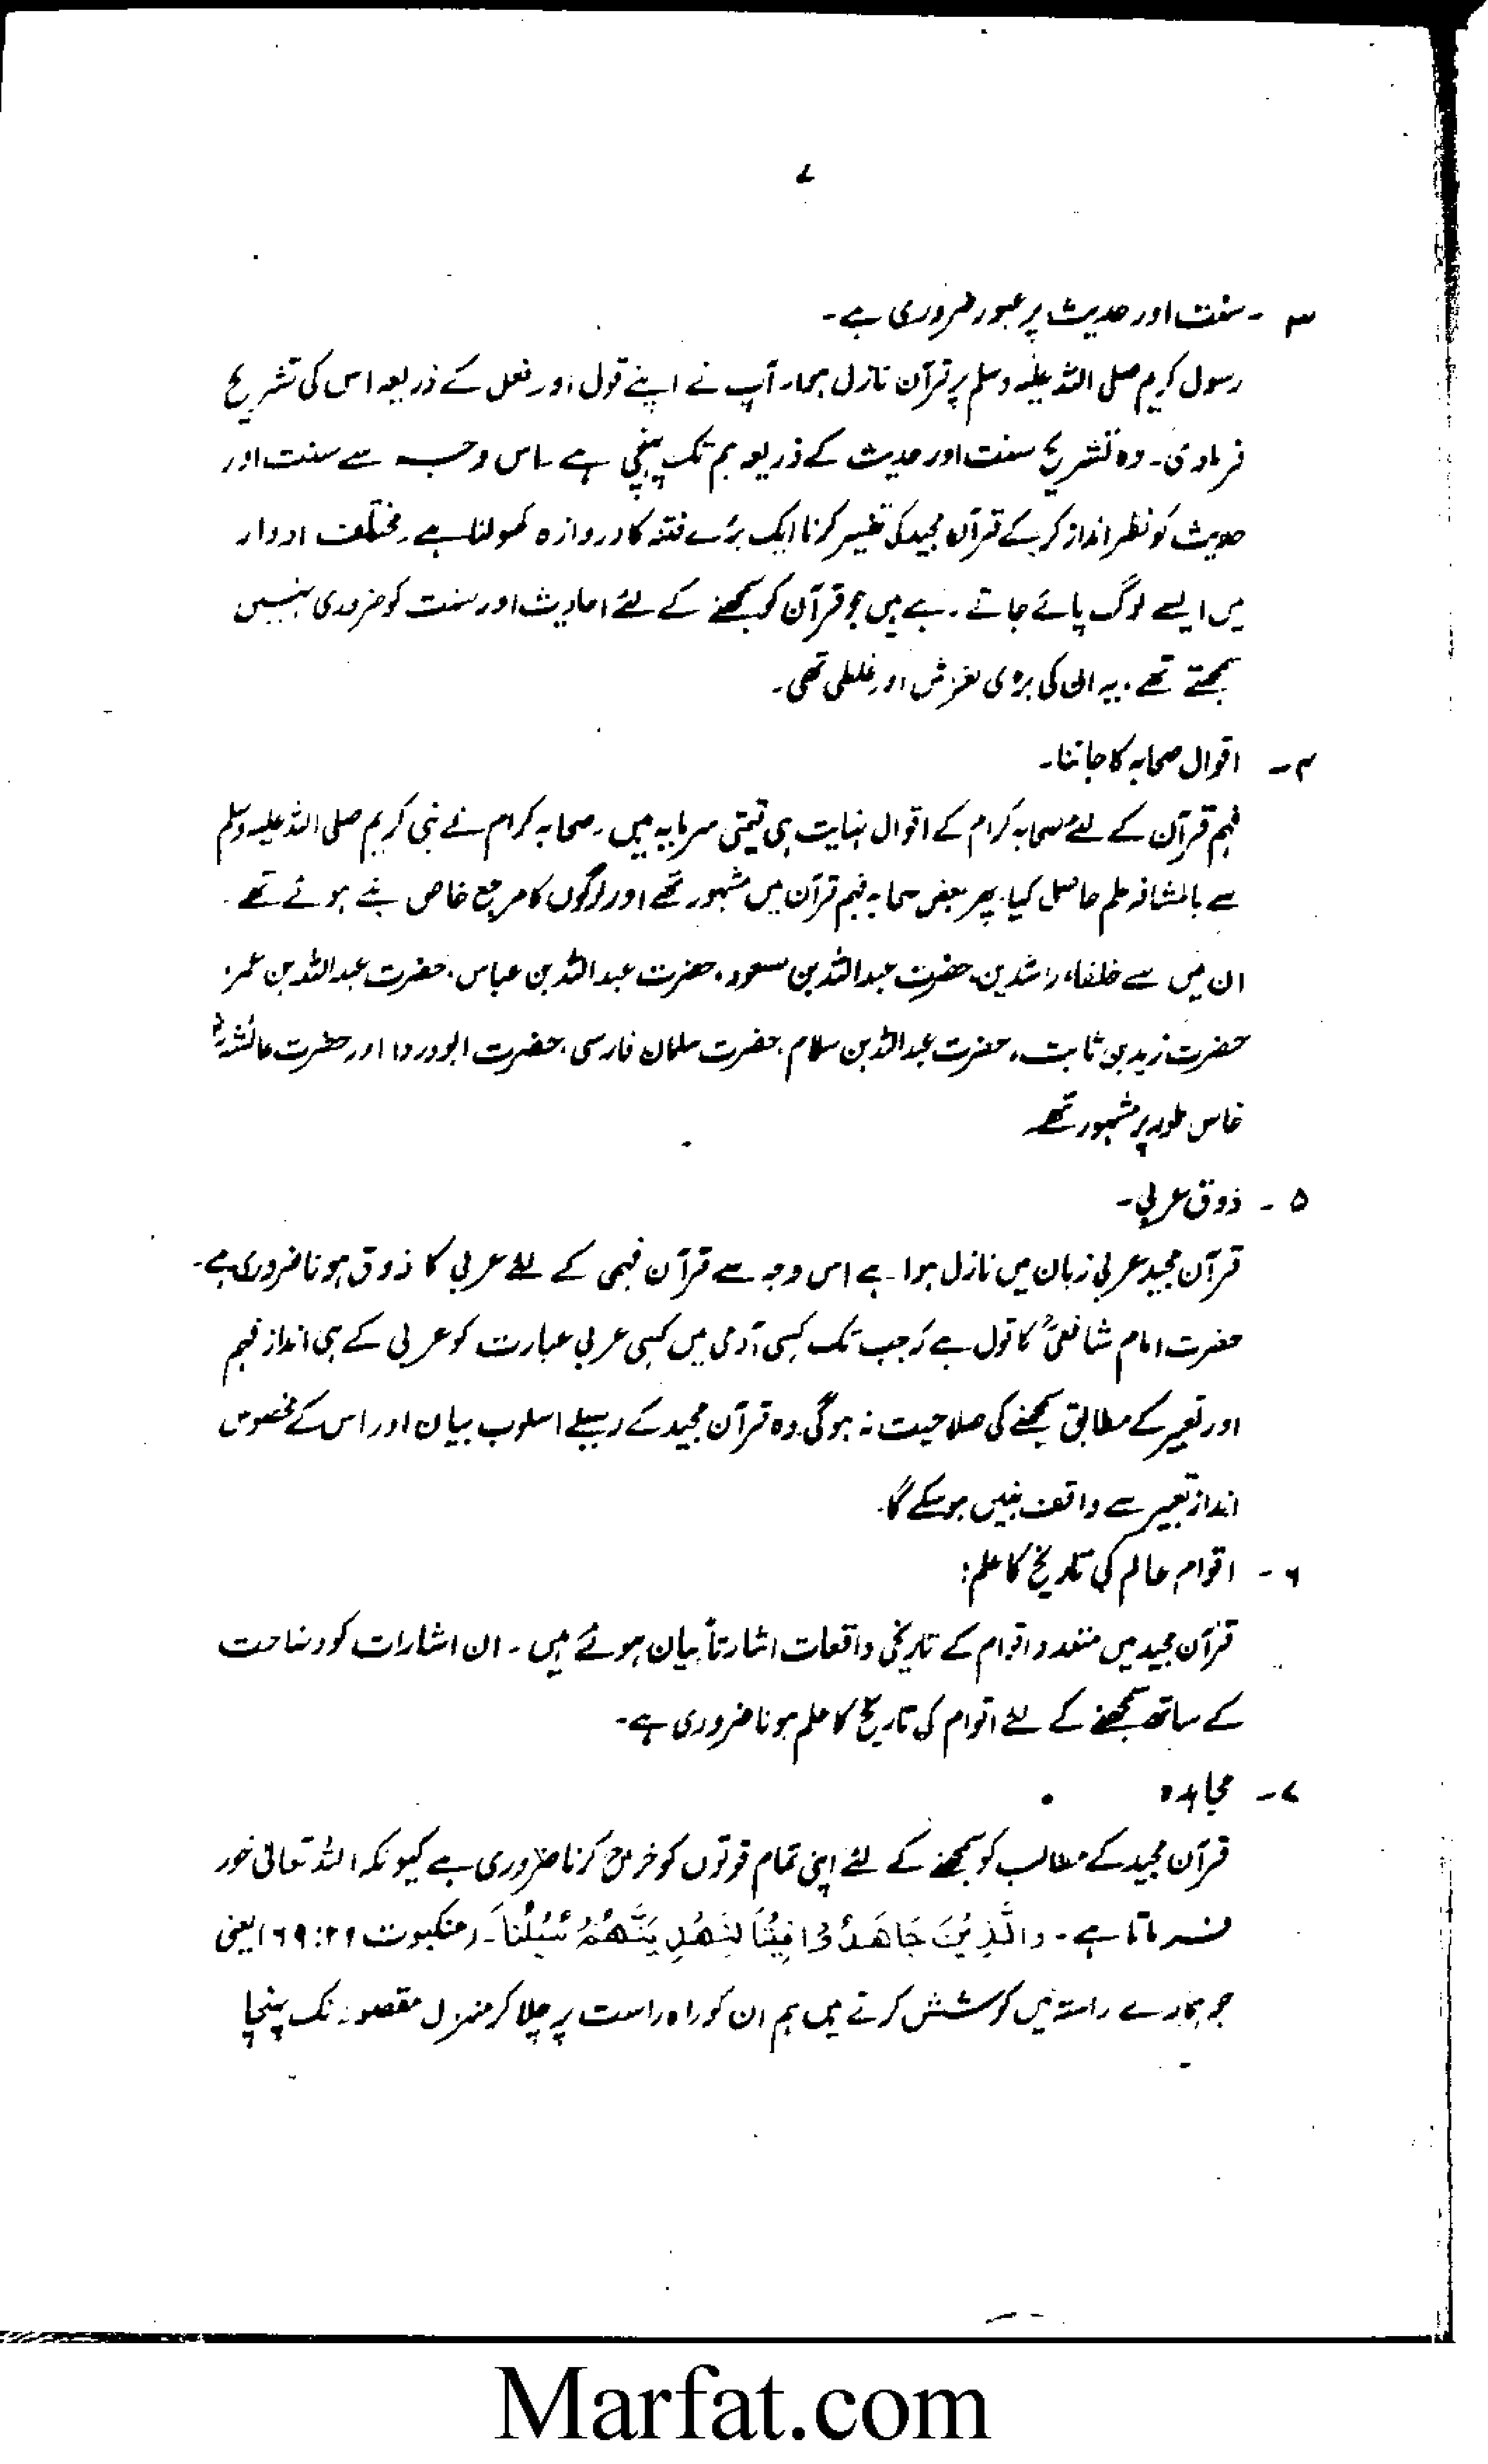 ۷
۳ ۔ سنت اور حدیث پر عبور ضروری ہے۔
رسول کریم صلی اللہ علیہ وسلم پر قرآن نازل ہوا۔ آپ نے اپنے قول اور فعل کے ذریعہ اس کی تشریح
فرمادی۔ وہ تشریح سنت اور حدیث کے ذریعہ ہم تک پہنچی ہے۔ اس وجہ سے سنت اور
حدیث کو نظر انداز کرکے قرآن مجید کی تفسیر کرنا ایک بڑے فتنہ کا دروازہ کھولنا ہے۔ مختلف ادوار
میں ایسے لوگ پائے جاتے رہے ہیں جو قرآن کو سمجھنے کے لئے احادیث اور سنت کو ضروری نہیں
سمجھتے تھے۔ یہ ان کی بڑی لغزش اور غلطی تھی۔
۴ ۔ اقوال صحابہ کا جاننا۔
فہم قرآن کے لئے صحابہ کرام کے اقوال نہایت ہی قیمتی سرمایہ ہیں۔ صحابہ کرام نے نبی کریم صلی اللہ علیہ وسلم
سے بالمشافہ علم حاصل کیا۔ پھر بعض صحابہ فہم قرآن میں مشہور تھے اور لوگوں کا مرجع خاص بنے ہوئے تھے۔
ان میں سے خلفاء راشدین، حضرت عبداللہ بن مسعود، حضرت عبداللہ بن عباس، حضرت عبداللہ بن عمر،
حضرت زید بن ثابت، حضرت عبداللہ بن سلام، حضرت سلمان فارسی، حضرت ابودردا اور حضرت عائشہؓ
خاص طور پر مشہور تھے
۵ ۔ ذوق عربی۔
قرآن مجید عربی زبان میں نازل ہوا ہے اس وجہ سے قرآن فہمی کے لئے عربی کا ذوق ہونا ضروری ہے۔
حضرت امام شافعیؒ کا قول ہے کہ جب تک کسی آدمی میں کسی عربی عبارت کو عربی کے ہی انداز فہم
اور تعبیر کے مطابق سمجھنے کی صلاحیت نہ ہوگی وہ قرآن مجید کے رسیلے اسلوب بیان اور اس کے مخصوص
انداز تعبیر سے واقف نہیں ہوسکے گا۔
۶ ۔ اقوام عالم کی تاریخ کا علم:
قرآن مجید میں متعدد اقوام کے تاریخی واقعات اشارتاً بیان ہوئے ہیں۔ ان اشارات کو وضاحت
کے ساتھ سمجھنے کے لئے اقوام کی تاریخ کا علم ہونا ضروری ہے۔
۷ ۔ مجاہدہ
قرآن مجید کے مطالب کو سمجھنے کے لئے اپنی تمام قوتوں کو خرچ کرنا ضروری ہے کیونکہ اللہ تعالیٰ خود
فرماتا ہے۔ وَالَّذِیْنَ جَاهَدُوْا فِیْنَا لَنَهْدِیَنَّهُمْ سُبُلَنَا۔ (عنکبوت ۲۹:۶۹) یعنی
جو ہمارے راستہ میں کوشش کرتے ہیں ہم ان کو راہ راست پر چلا کر منزل مقصود تک پہنچا
Marfat.com